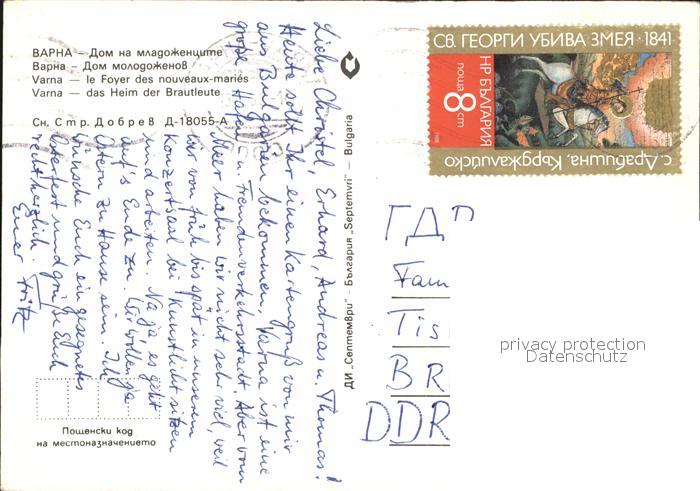 ВАРНА — Дом на младоженците
Варна — Дом молодоженов
Varna — le Foyer des nouveaux-mariés
Varna — das Heim der Brautleute
Сн. Стр. Добрев Д-18055-А
Liebe Christel, Erhard, Andreas u. Thomas!
Heute sollt Ihr einen Kartengruß von mir
aus Bulgarien bekommen. Varna ist eine
große Hafen- u. Fremdenverkehrsstadt. Aber vom
Meer haben wir nicht sehr viel, weil
wir von früh bis spät in unserem
Konzertsaal bei Kunstlicht sitzen
und arbeiten. Na ja, es geht
auf's Ende zu. Wir wollen ja
Ostern zu Hause sein. Ich
wünsche Euch ein gesegnetes
Osterfest und grüße Euch
recht herzlich.
Euer Fritz
Пощенски код
на местоназначението
ДИ „Септември" — България „Septemvri" — Bulgaria
СВ. ГЕОРГИ УБИВА ЗМЕЯ · 1841
НР БЪЛГАРИЯ
поща 8 ст
с. Драбишна, Кърджалийско
ГДР
Fam
Tis
BR
DDR
privacy protection
Datenschutz